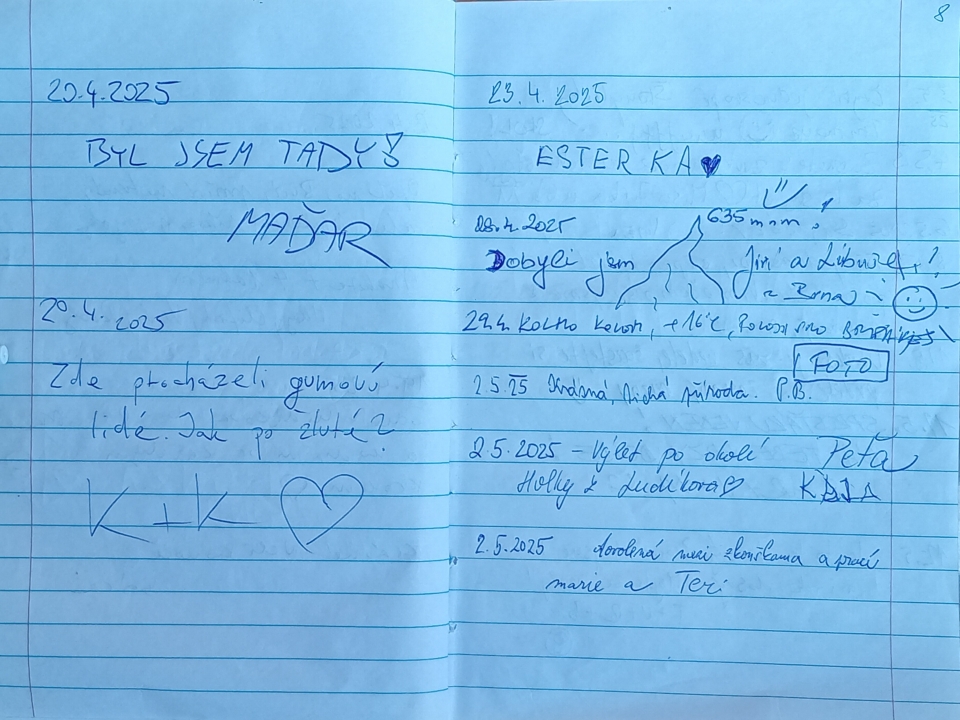 20.4.2025
BYL JSEM TADY!
MAĎAR
20.4.2025
Zde procházeli gumoví
lidé. Jak po žluté?
K+K
8
23.4.2025
ESTERKA
635 mnm!
28.4.2025
Dobyli jsm
Jiří a Libuše
z Brna
29.4. Kolmo kolem, +16°C,
FOTO
2.5.25 Krásná, tichá příroda. P.B.
2.5.2025 - Výlet po okolí Peťa
Holky z Ludíkova KÁJA
2.5.2025 dovolená mezi zkouškama a prací
marie a Teri